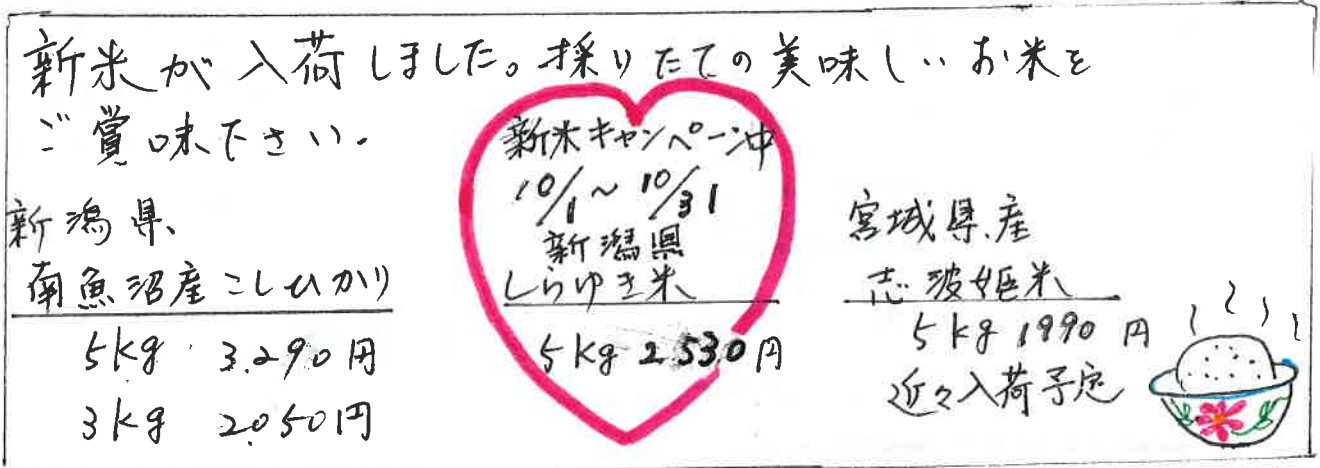 新米が入荷しました。採りたての美味しいお米を
ご賞味下さい。
新潟県、
南魚沼産こしひかり
5kg 3.290円
3kg 2.050円
新米キャンペーン中
10/1〜10/31
新潟県
しらゆき米
5kg 2.530円
宮城県産
志波姫米
5kg 1990円
近々入荷予定